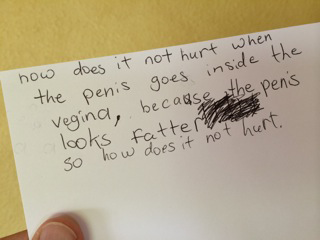 how does it not hurt when
the penis goes inside the
vegina, because the penis
looks fatter
so how does it not hurt.